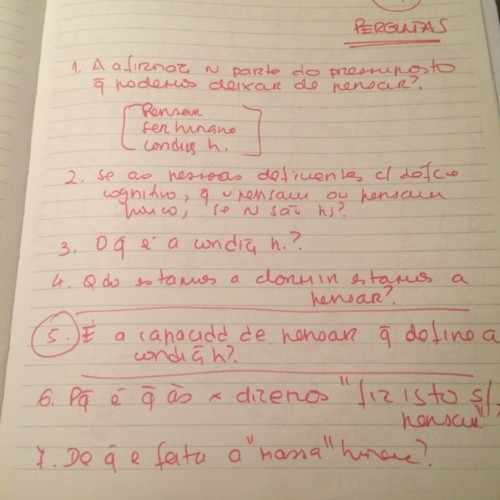 PERGUNTAS
1. A afirmaç ñ parte do pressuposto
q̃ podemos deixar de pensar?
Pensar
ser humano
condiç h.
2. Se as pessoas deficientes c/ défice
cognitivo, q̃ ñ pensam ou pensam
pouco, se ñ são hs?
3. O q̃ é a condiçã h.?
4. Qdo estamos a dormir estamos a
pensar?
5. É a capacidd de pensar q̃ define a
condiçã h?
6. Pq̃ é q̃ às x dizemos "fiz isto s/
pensar"
7. De q̃ é feita a "massa" humana?